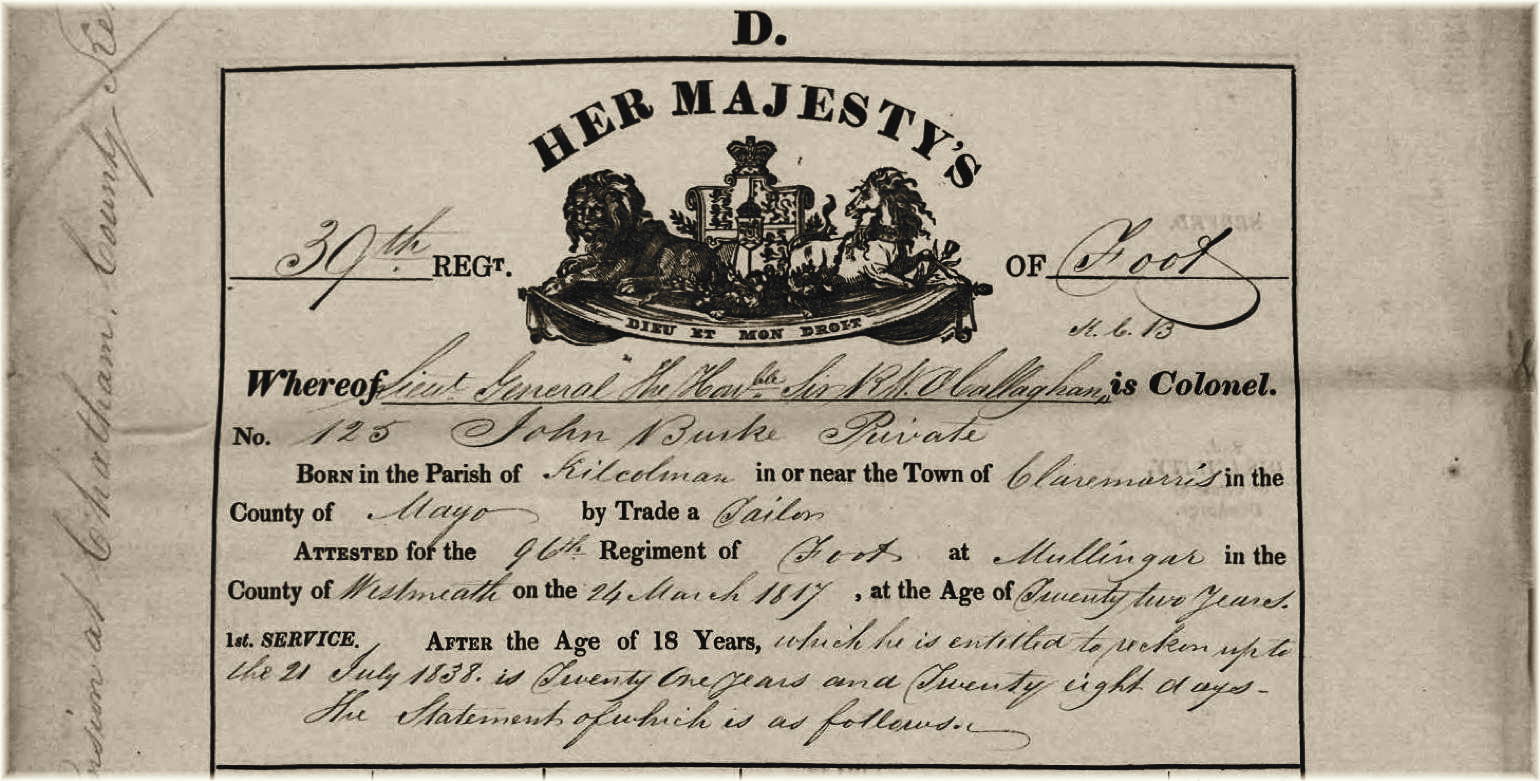 D.
HER MAJESTY'S
39th REGT. OF Foot
DIEU ET MON DROIT
K. C. B
Whereof Lieut General The Honble Sir R.W. O Callaghan is Colonel.
No. 125 John Burke Private
BORN in the Parish of Kilcolman in or near the Town of Claremorris in the
County of Mayo by Trade a Tailor
ATTESTED for the 96th Regiment of Foot at Mullingar in the
County of Westmeath on the 24 March 1817, at the Age of Twenty two Years.
1st. SERVICE. AFTER the Age of 18 Years, which he is entitled to reckon up to
the 21 July 1838. is Twenty One years and Twenty eight days -
The Statement of which is as follows.
at Chatham. County